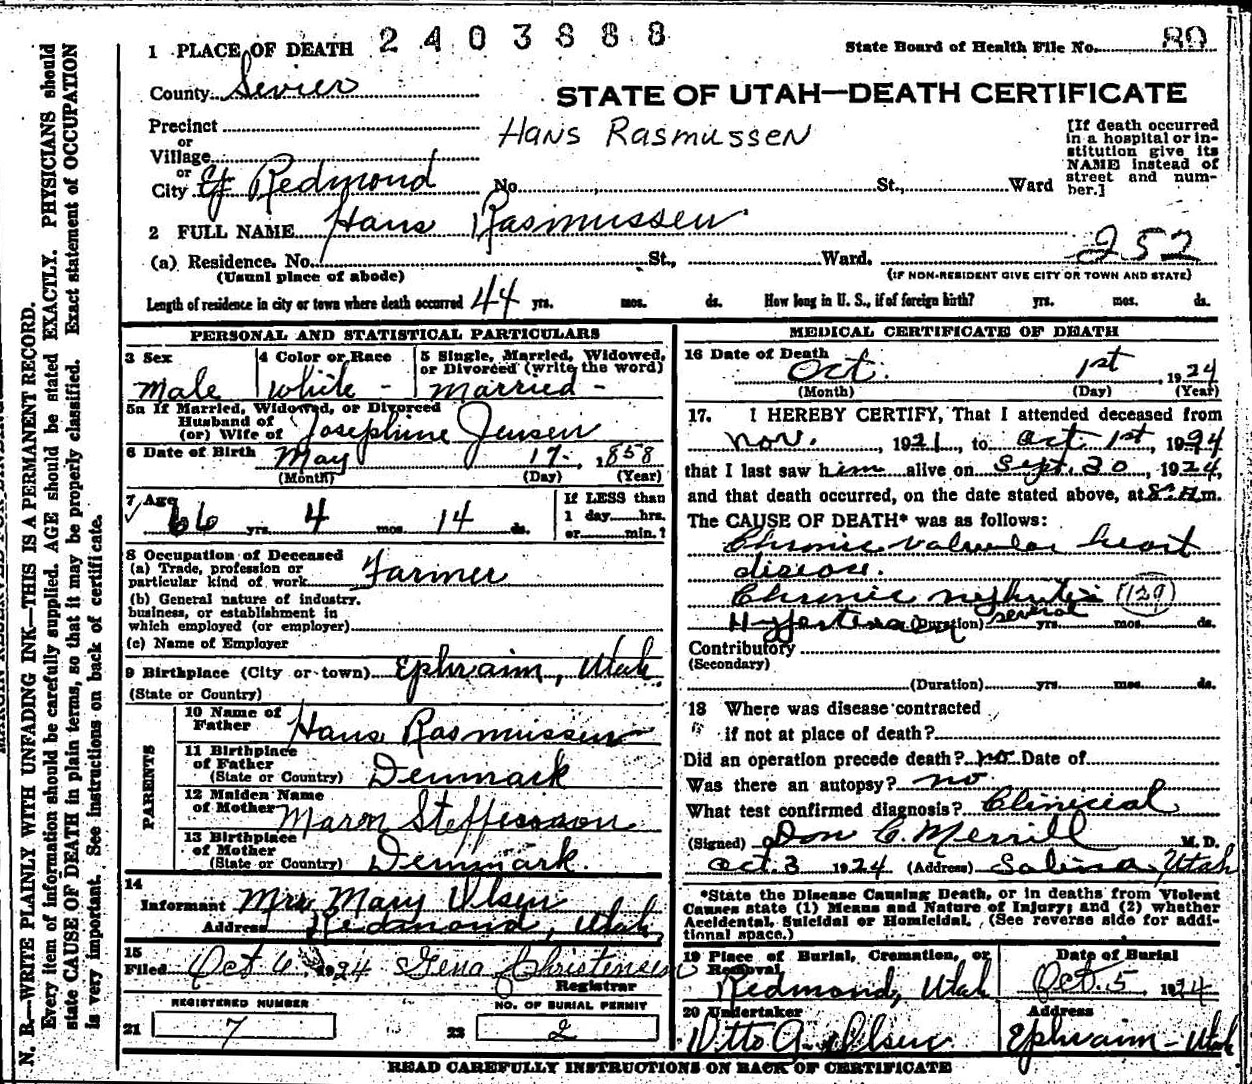 MARGIN RESERVED FOR BINDING
N. B.—WRITE PLAINLY WITH UNFADING INK—THIS IS A PERMANENT RECORD.
Every item of information should be carefully supplied. AGE should be stated EXACTLY. PHYSICIANS should
state CAUSE OF DEATH in plain terms, so that it may be properly classified. Exact statement of OCCUPATION
is very important. See instructions on back of certificate.
2403888
1 PLACE OF DEATH
State Board of Health File No. 89
County Sevier
STATE OF UTAH—DEATH CERTIFICATE
Precinct
or
Village
or
Hans Rasmussen
[If death occurred
in a hospital or in-
stitution give its
NAME instead of
street and num-
ber.]
City of Redmond No. St., Ward
2 FULL NAME Hans Rasmussen
252
(a) Residence. No. St., Ward.
(Usual place of abode) (IF NON-RESIDENT GIVE CITY OR TOWN AND STATE)
Length of residence in city or town where death occurred 44 yrs. mos. ds. How long in U. S., if of foreign birth? yrs. mos. ds.
PERSONAL AND STATISTICAL PARTICULARS
3 Sex 4 Color or Race 5 Single, Married, Widowed,
or Divorced (write the word)
Male White - Married -
5a If Married, Widowed, or Divorced
Husband of
(or) Wife of Josephine Jensen
6 Date of Birth May 17 - 1858
(Month) (Day) (Year)
7 Age 66 yrs. 4 mos. 14 ds.
If LESS than
1 day hrs.
or min.?
8 Occupation of Deceased
(a) Trade, profession or
particular kind of work Farmer
(b) General nature of industry,
business, or establishment in
which employed (or employer)
(c) Name of Employer
9 Birthplace (City or town) Ephraim, Utah.
(State or Country)
PARENTS
10 Name of
Father Hans Rasmussen
11 Birthplace
of Father
(State or Country) Denmark
12 Maiden Name
of Mother Maren
13 Birthplace
of Mother
(State or Country) Denmark.
14
Informant Mrs Mary Olsen
Address Redmond, Utah
15
Filed Oct 6 1924 Gena Christensen
Registrar
REGISTERED NUMBER NO. OF BURIAL PERMIT
21 7 22 2
MEDICAL CERTIFICATE OF DEATH
16 Date of Death
Oct. 1st, 1924
(Month) (Day) (Year)
17. I HEREBY CERTIFY, That I attended deceased from
Nov. , 1921, to Oct 1st, 1924
that I last saw him alive on Sept. 30, 1924,
and that death occurred, on the date stated above, at 8. A.m.
The CAUSE OF DEATH* was as follows:
Chronic Valvular heart
disease.
Chronic nephritis (129)
(Duration) several yrs. mos. ds.
Contributory
(Secondary)
(Duration) yrs. mos. ds.
18 Where was disease contracted
if not at place of death?
Did an operation precede death? no Date of
Was there an autopsy? no
What test confirmed diagnosis? Clinicial
(Signed) Don C. Merrill M.D.
Oct. 3 1924 (Address) Salina, Utah
*State the Disease Causing Death, or in deaths from Violent
Causes state (1) Means and Nature of Injury; and (2) whether
Accidental, Suicidal or Homicidal. (See reverse side for addi-
tional space.)
19 Place of Burial, Cremation, or
Removal
Redmond, Utah
Date of Burial
Oct. 5, 1924
20 Undertaker Address
Otto A. Olsen. Ephraim - Utah
READ CAREFULLY INSTRUCTIONS ON BACK OF CERTIFICATE